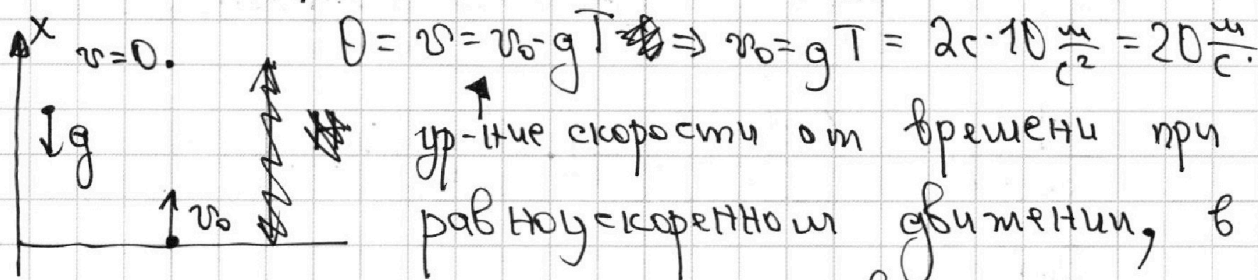 x
v=0.
0 = v = v₀ - gT ⇒ v₀ = gT = 2с · 10 м/с² = 20 м/с.
g
ур-ние скорости от времени при
v₀
равноускоренном движении, в